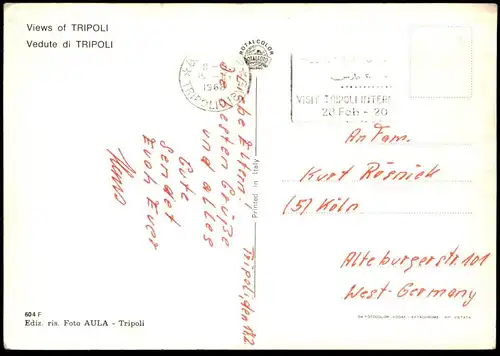 Views of TRIPOLI
Vedute di TRIPOLI
ROTALCOLOR
ROTALFOTO
MILANO
TRIPOLI
1968
VISIT TRIPOLI INTER
20 Feb - 20
Tripoli, den 18.2.
Liebe Eltern!
Die besten Grüße
und alles
Gute
sendet
Euch Euer
Hans
Printed in Italy
An Fam.
Kurt Rösnick
(5) Köln
Alteburgerstr. 101
West-Germany
604 F
Ediz. ris. Foto AULA - Tripoli